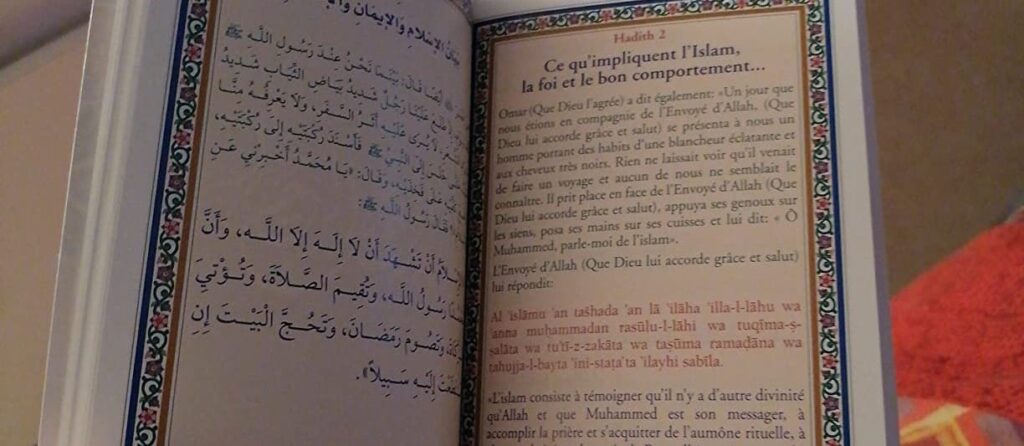 بيان الإسلام والإيمان
أيضا قال: بينما نحن عند رسول الله ﷺ
طلع علينا رجل شديد بياض الثياب شديد
لا يرى عليه أثر السفر، ولا يعرفه منا
حتى جلس إلى النبي ﷺ فأسند ركبتيه إلى ركبتيه،
كفيه على فخذيه، وقال: «يا محمد أخبرني عن
فقال رسول الله ﷺ:
الإسلام أن تشهد أن لا إله إلا الله، وأن
رسول الله، وتقيم الصلاة، وتؤتي
وتصوم رمضان، وتحج البيت إن
إليه سبيلاً».
Hadith 2
Ce qu'impliquent l'Islam,
la foi et le bon comportement...
Omar (Que Dieu l'agrée) a dit également: «Un jour que
nous étions en compagnie de l'Envoyé d'Allah. (Que
Dieu lui accorde grâce et salut) se présenta à nous un
homme portant des habits d'une blancheur éclatante et
aux cheveux très noirs. Rien ne laissait voir qu'il venait
de faire un voyage et aucun de nous ne semblait le
connaître. Il prit place en face de l'Envoyé d'Allah (Que
Dieu lui accorde grâce et salut), appuya ses genoux sur
les siens, posa ses mains sur ses cuisses et lui dit: « Ô
Muhammed, parle-moi de l'islam».
L'Envoyé d'Allah (Que Dieu lui accorde grâce et salut)
lui répondit:
Al 'islāmu 'an tašhada 'an lā 'ilāha 'illa-l-lāhu wa
'anna muhammadan rasūlu-l-lāhi wa tuqīma-ṣ-
ṣalāta wa tu'tī-z-zakāta wa taṣūma ramaḍāna wa
tahujja-l-bayta 'ini-staṭa'ta 'ilayhi sabīla.
«L'islam consiste à témoigner qu'il n'y a d'autre divinité
qu'Allah et que Muhammed est son messager, à
accomplir la prière et s'acquitter de l'aumône rituelle, à